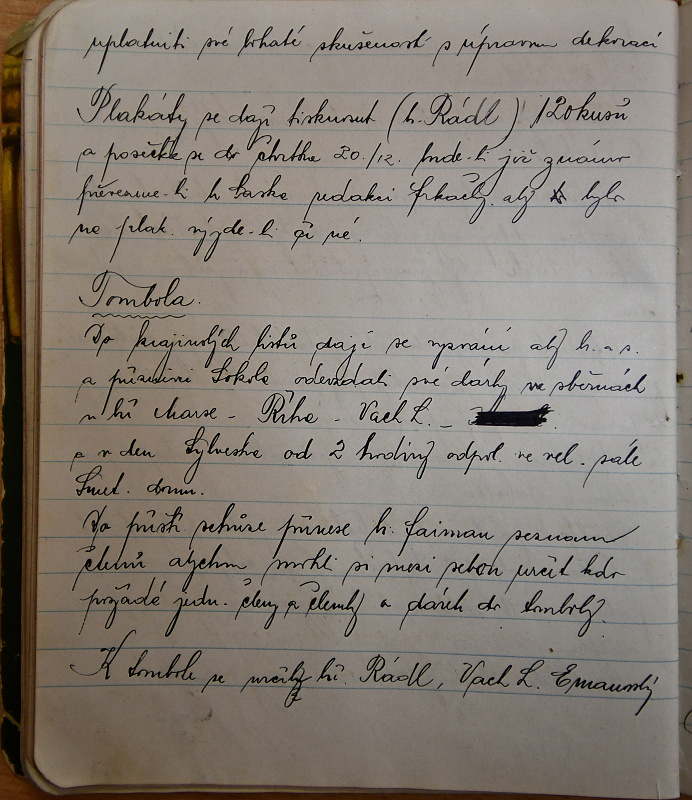 uplatniti své bohaté skušenosti s úpravou dekorací
Plakáty se dají tisknout (br. Rádl) 120 kusů
a posečká se do čtvrtka 20./12. bude-li již známo
převezme-li br. Baske redakci frkačky, aby bylo
na plak. vyjde-li či né.
Tombola.
Do krajinských listů dají se vyzvání aby b. a s.
a příznivci Sokola odevzdali své dárky ve sběrnách
u bří Marse - Říha - Vach L. -
a v den Sylvestra od 2 hodiny odpol. ve vel. sále
Smet. domu.
Do příští schůze přinese br. Faiman seznam
členů abychom mohli si mezi sebou určit kdo
požádá jedn. členy a členky a dárek do tomboly.
K tombole se určily bří. Rádl, Vach L. Emanovský